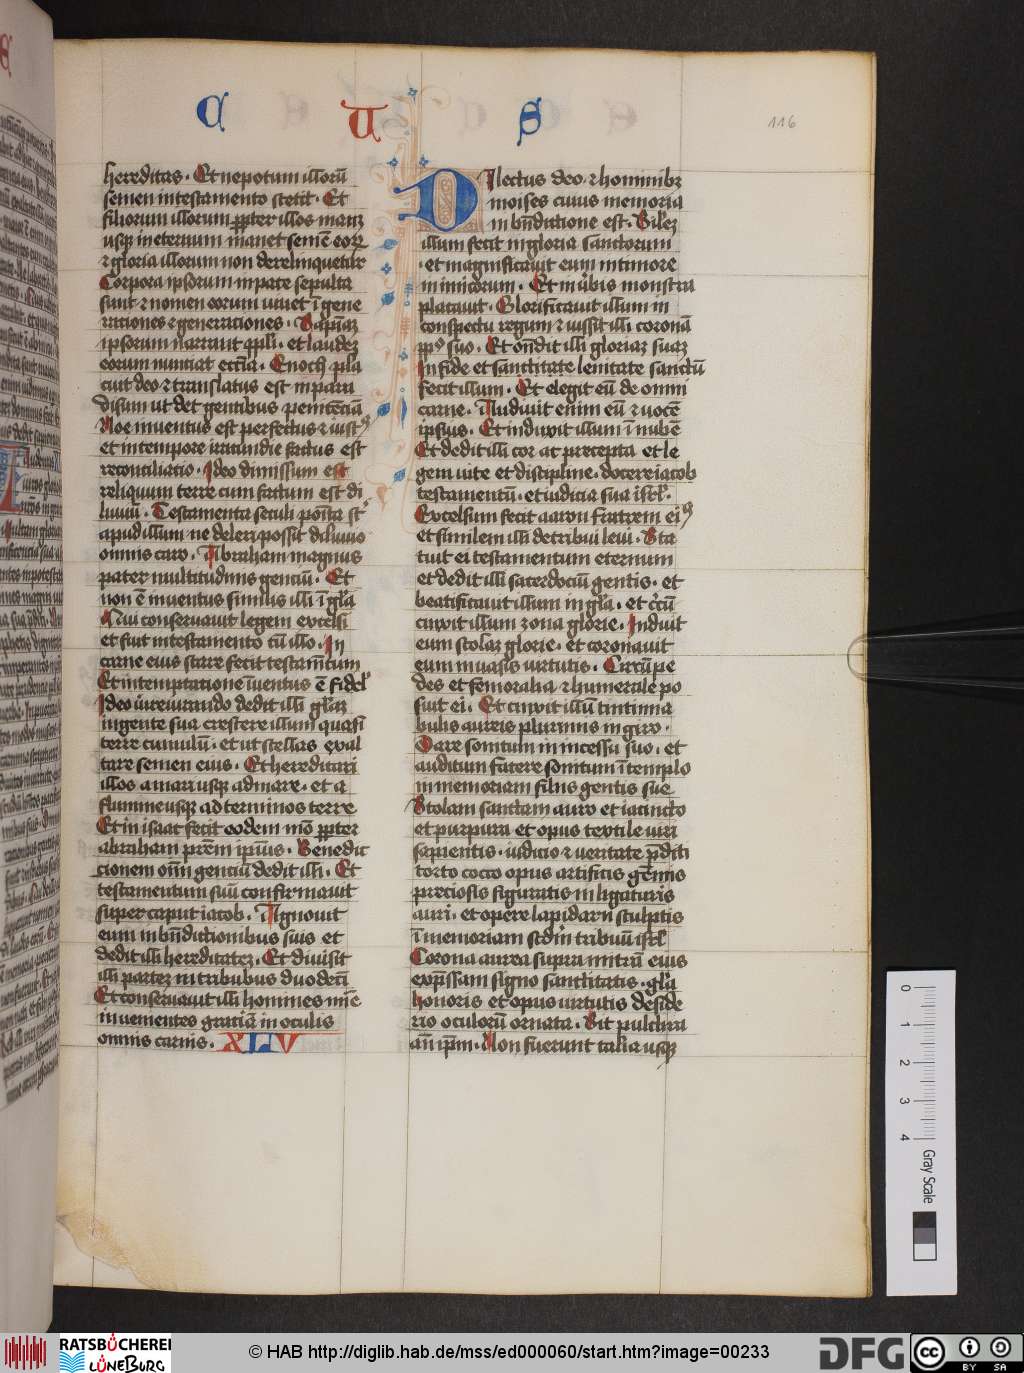 C U S
116
hereditas. Et nepotum illorū
semen in testamento stetit. Et
filiorum illorum ppter illos manz
usqz in eternum manet semē eorz
et gloria illorum non derelinquetur
Corpora ipsorum in pace sepulta
sunt et nomen eorum vivet ī gene
rationes et generationes. Sapiāz
ipsorum narrant ppli. et laudez
eorum nunciat eccīa. Enoch pla
cuit deo et translatus est in pari
disum ut det gentibus penitēciā
Noe inventus est perfectus et iustꝰ
et in tempore iracundie factus est
reconciliatio. Ideo dimissum est
reliquum terre cum factum est di
luviū. Testamenta seculi poīta st̄
apud illum ne deleri possit diluvio
omnis caro. Abraham magnus
pater multitudinis genciū. Et
non ē inventus similis illi ī glīa
Qui conservavit legem excelsi
et fuit in testamento cū illo. In
carne eius stare fecit testam̄tum
Et in temptatione īventus ē fidel̛
Ideo iureiurando dedit illi gl̄az
in gente sua crescere illum quasi
terre cumulū. et ut stellas exal
tare semen eius. Et hereditari
illos a mari usqz ad mare. et a
flumine usqz ad terminos terre
Et in isaac fecit eodem mō ppter
abraham prēm ipsius. Benedic
cionem oīm genciū dedit illi. Et
testamentum suū confirmavit
super caput iacob. Agnovit
eum in bn̄dictionibus suis et
dedit illi hereditatez. Et divisit
illi partez in tribubus duodecī
Et conservavit illi homines mīe
invenientes graciā in oculis
omnis carnis. XLV
Dilectus deo. et hominibz
moises cuius memoria
in bn̄dictione est. Silez
illum fecit in gloria sanctorum
et magnificavit eum in timore
inimicorum. Et in v̄bis monstra
placavit. Glorificavit illum in
conspectu regum et iussit illi coronā
pplo suo. Et on̄dit illi gloriaz suaz
In fide et sanctitate lenitate sanctū
fecit illum. Et elegit eū de omni
carne. Audivit enim eū et vocē
ipsius. Et induxit illum ī nubē
Et dedit illi cor ac precepta et le
gem vite et discipline. docere iacob
testamentū. et iudicia sua isrl̄.
Excelsum fecit aaron fratrem eiꝰ
et similem illi de tribu levi. Sta
tuit ei testamentum eternum
et dedit illi sacerdociū gentis. et
beatificavit illum in gl̄a. et circū
cinxit illum zona glorie. Induit
eum stolaz glorie. et coronavit
eum in vasis virtutis. Circūpe
des et femoralia et humerale po
suit ei. Et cinxit illū tintinna
bulis aureis plurimis in giro.
Dare sonitum in incessu suo. et
auditum facere sonitum ī templo
in memoriam filiis gentis sue
Stolam sanctam auro et iacincto
et purpura et opus textile viri
sapientis. iudicio et veritate p̄diti
Torto cocco opus artificis gēmis
preciosis figuratis in ligaturis
auri. et opere lapidarii sculptis
ī memoriam scd̄m tribuū isrl̄
Corona aurea supra mitrū eius
exp̄ssam signo sanctitatis. glīa
honoris et opus virtutis deside
rio oculorū ornata. Sic pulchra
an̄ ip̄m. Non fuerunt talia usqz
0
1
2
3
4
Gray Scale
RATSBÜCHEREI
LÜNEBURG
© HAB http://diglib.hab.de/mss/ed000060/start.htm?image=00233
DFG
cc BY SA